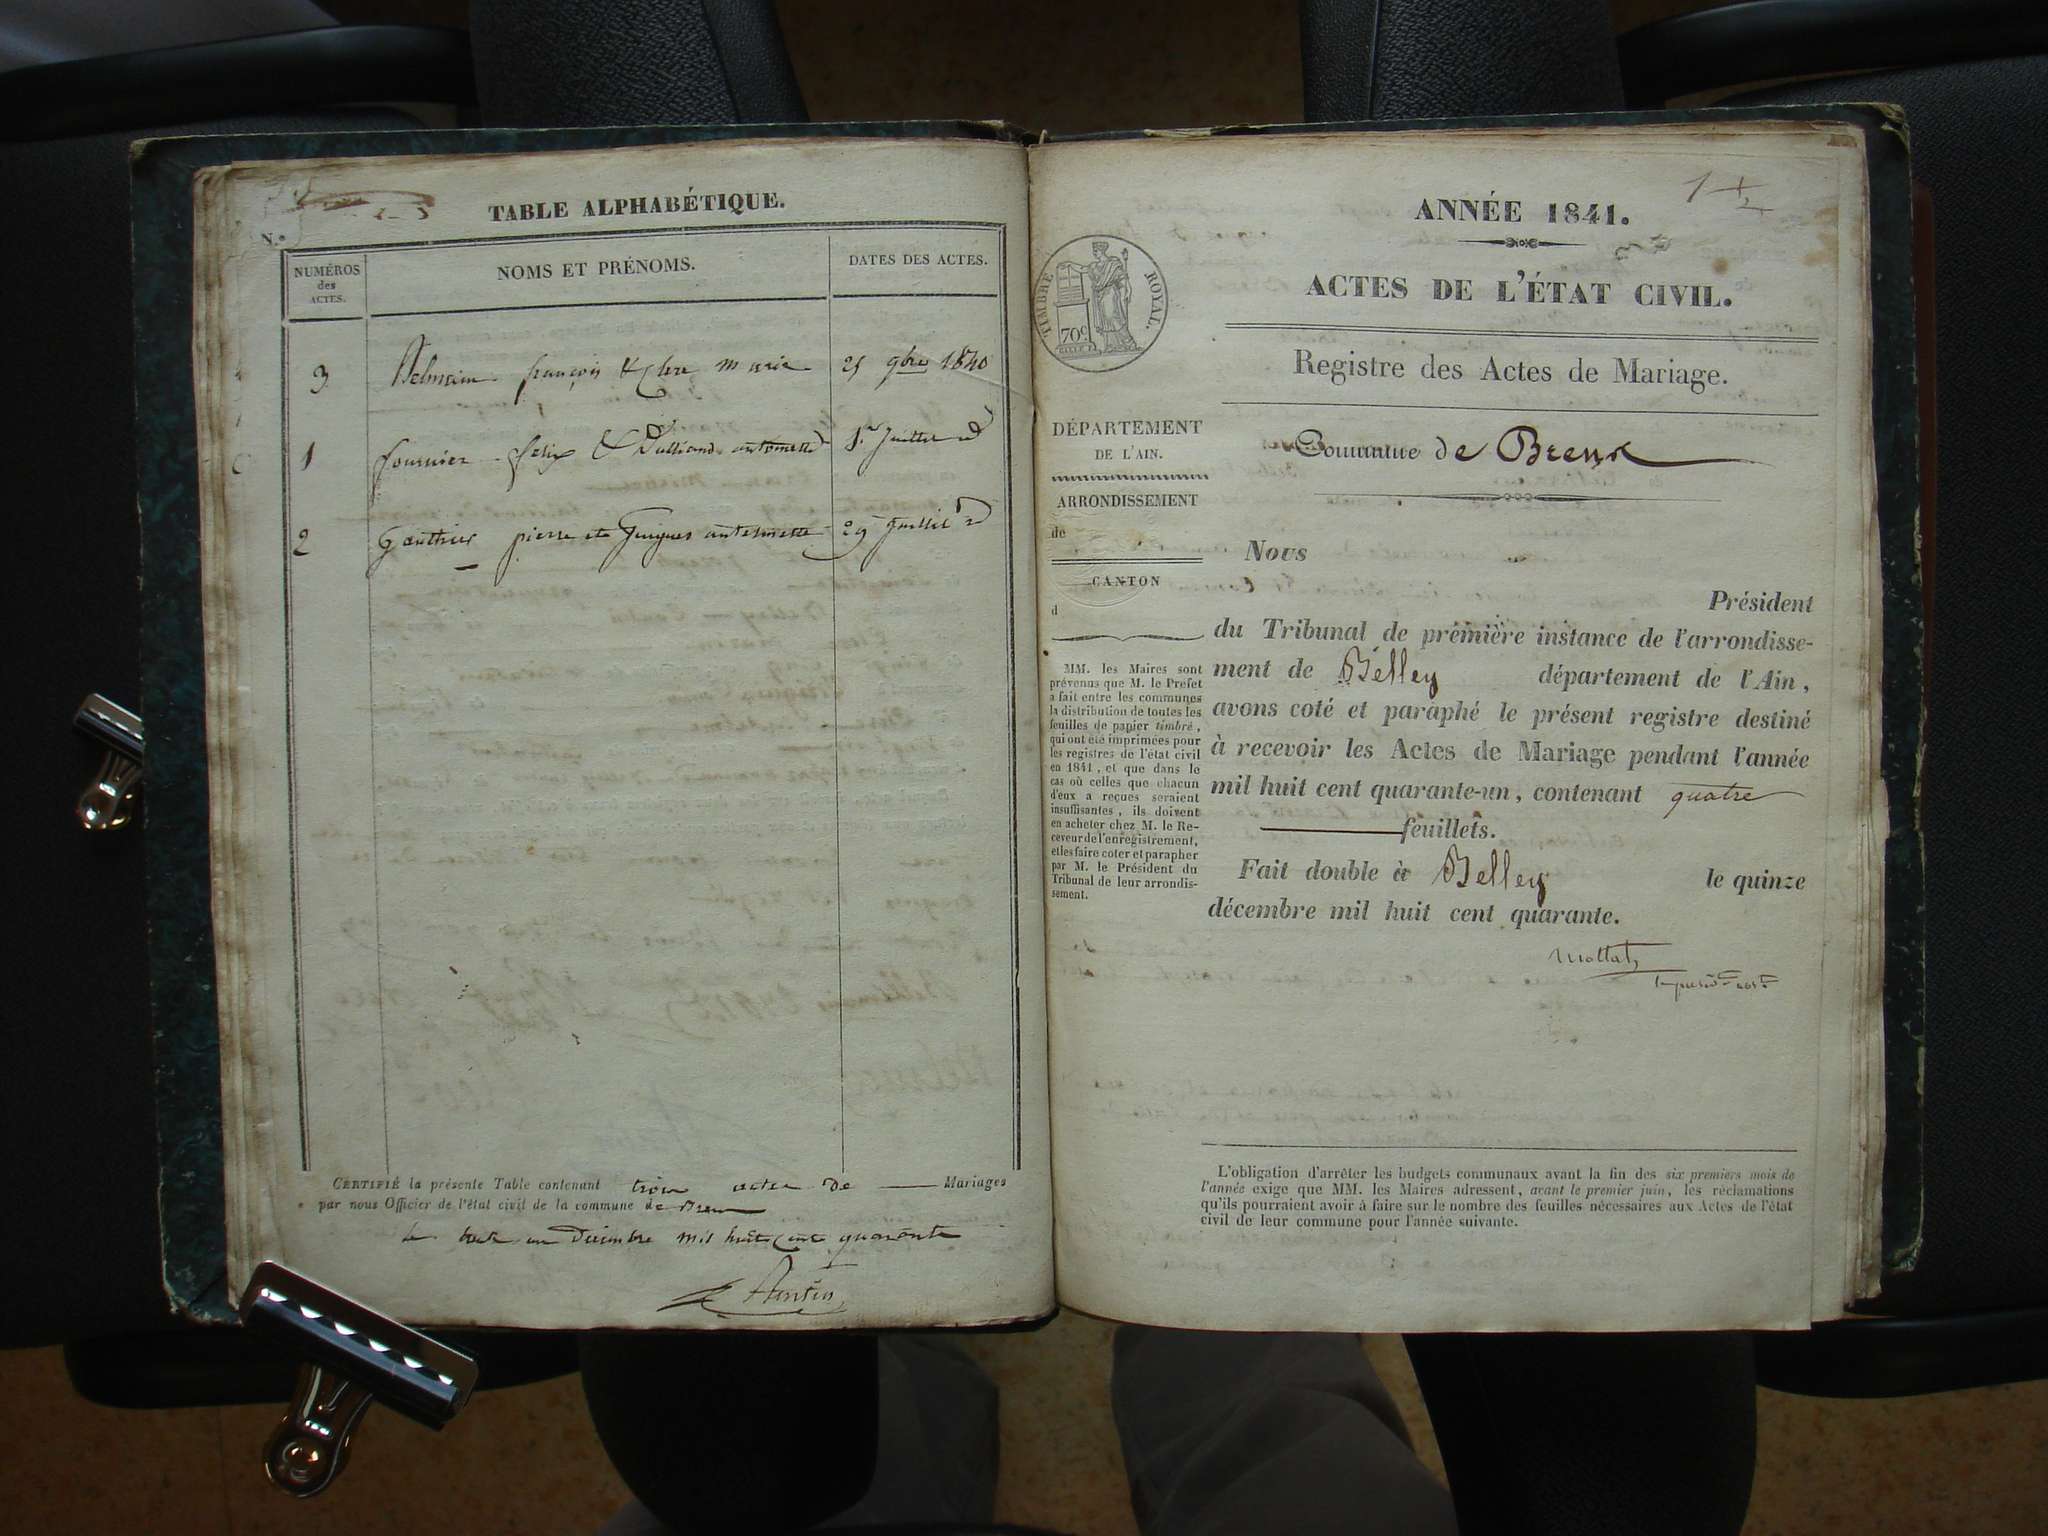 TABLE ALPHABÉTIQUE.
N.º
NUMÉROS
des
ACTES.
NOMS ET PRÉNOMS.
DATES DES ACTES.
3 françois & Clere marie 25 9bre 1840
1 fournier felix & antoinette 1er Juillet id
2 Gauthier pierre et Guigues anthelmette 29 Juillet id
CERTIFIÉ la présente Table contenant trois actes de Mariages
par nous Officier de l'état civil de la commune de Brens
Le trente un Décembre mil huit cent quarante
ANNÉE 1841.
ACTES DE L'ÉTAT CIVIL.
Registre des Actes de Mariage.
Commune de Brens
TIMBRE ROYAL.
70c
DÉPARTEMENT
DE L'AIN.
ARRONDISSEMENT
de
CANTON
d
MM. les Maires sont
prévenus que M. le Préfet
a fait entre les communes
la distribution de toutes les
feuilles de papier timbré,
qui ont été imprimées pour
les registres de l'état civil
en 1841, et que dans le
cas où celles que chacun
d'eux a reçues seraient
insuffisantes, ils doivent
en acheter chez M. le Re-
ceveur de l'enregistrement,
et les faire coter et parapher
par M. le Président du
Tribunal de leur arrondis-
sement.
Nous
Président
du Tribunal de première instance de l'arrondisse-
ment de Belley département de l'Ain,
avons coté et paraphé le présent registre destiné
à recevoir les Actes de Mariage pendant l'année
mil huit cent quarante-un, contenant quatre
feuillets.
Fait double à Belley le quinze
décembre mil huit cent quarante.
L'obligation d'arrêter les budgets communaux avant la fin des six premiers mois de
l'année exige que MM. les Maires adressent, avant le premier juin, les réclamations
qu'ils pourraient avoir à faire sur le nombre des feuilles nécessaires aux Actes de l'état
civil de leur commune pour l'année suivante.